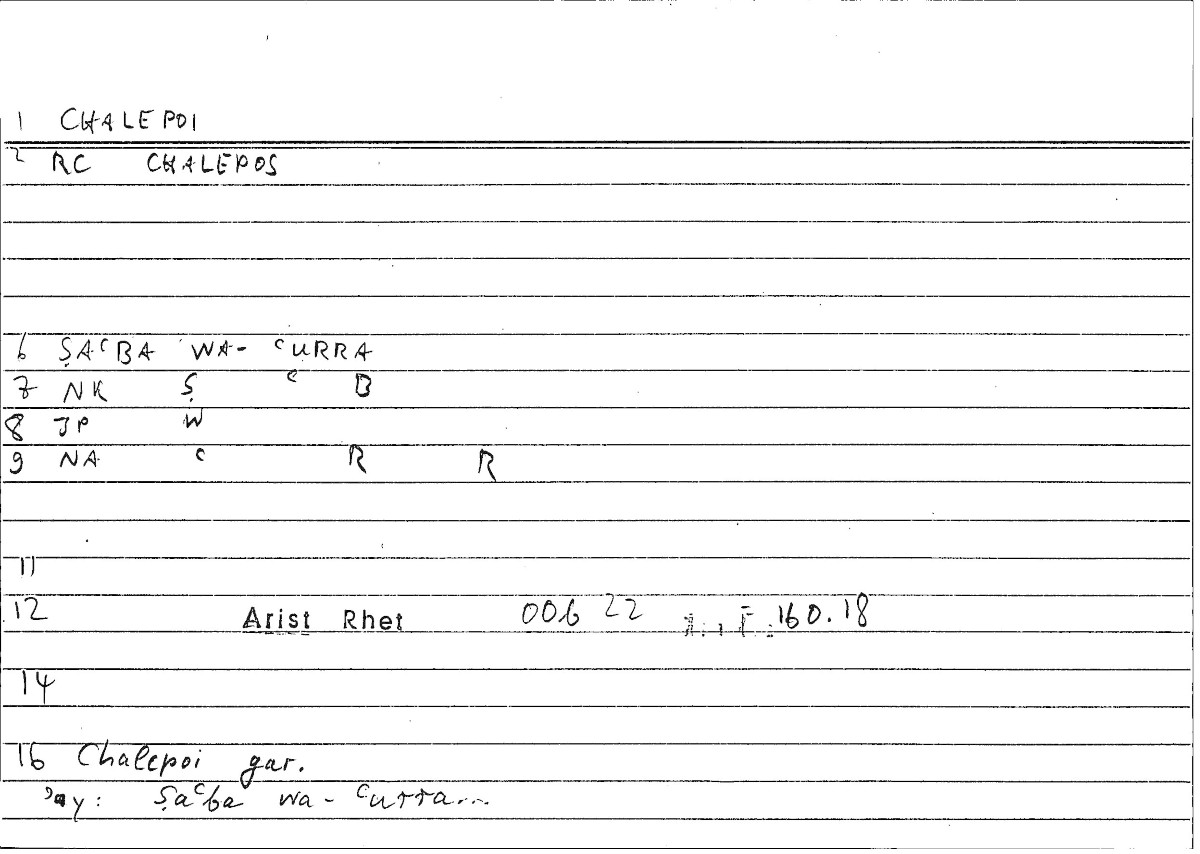 1 CHALEPOI
2 RC CHALEPOS
6 ṢAʿBA WA- ʿURRA
7 NK Ṣ ʿ B
8 JP W
9 NA ʿ R R
11
12 Arist Rhet 006 22 160.18
14
16 Chalepoi gar.
ʾay: ṣaʿba wa- ʿurra...